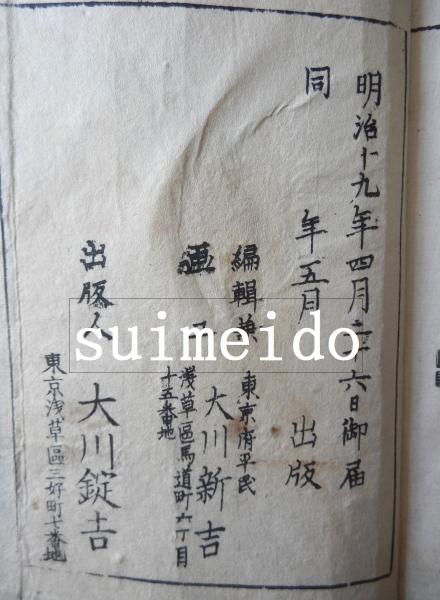 明治十九年四月二十六日御届
同 年五月 出版
編輯兼 東京府平民
画工 大川新吉
浅草區馬道町六丁目
十五番地
出版人 大川錠吉
東京浅草區三好町七番地
suimeido